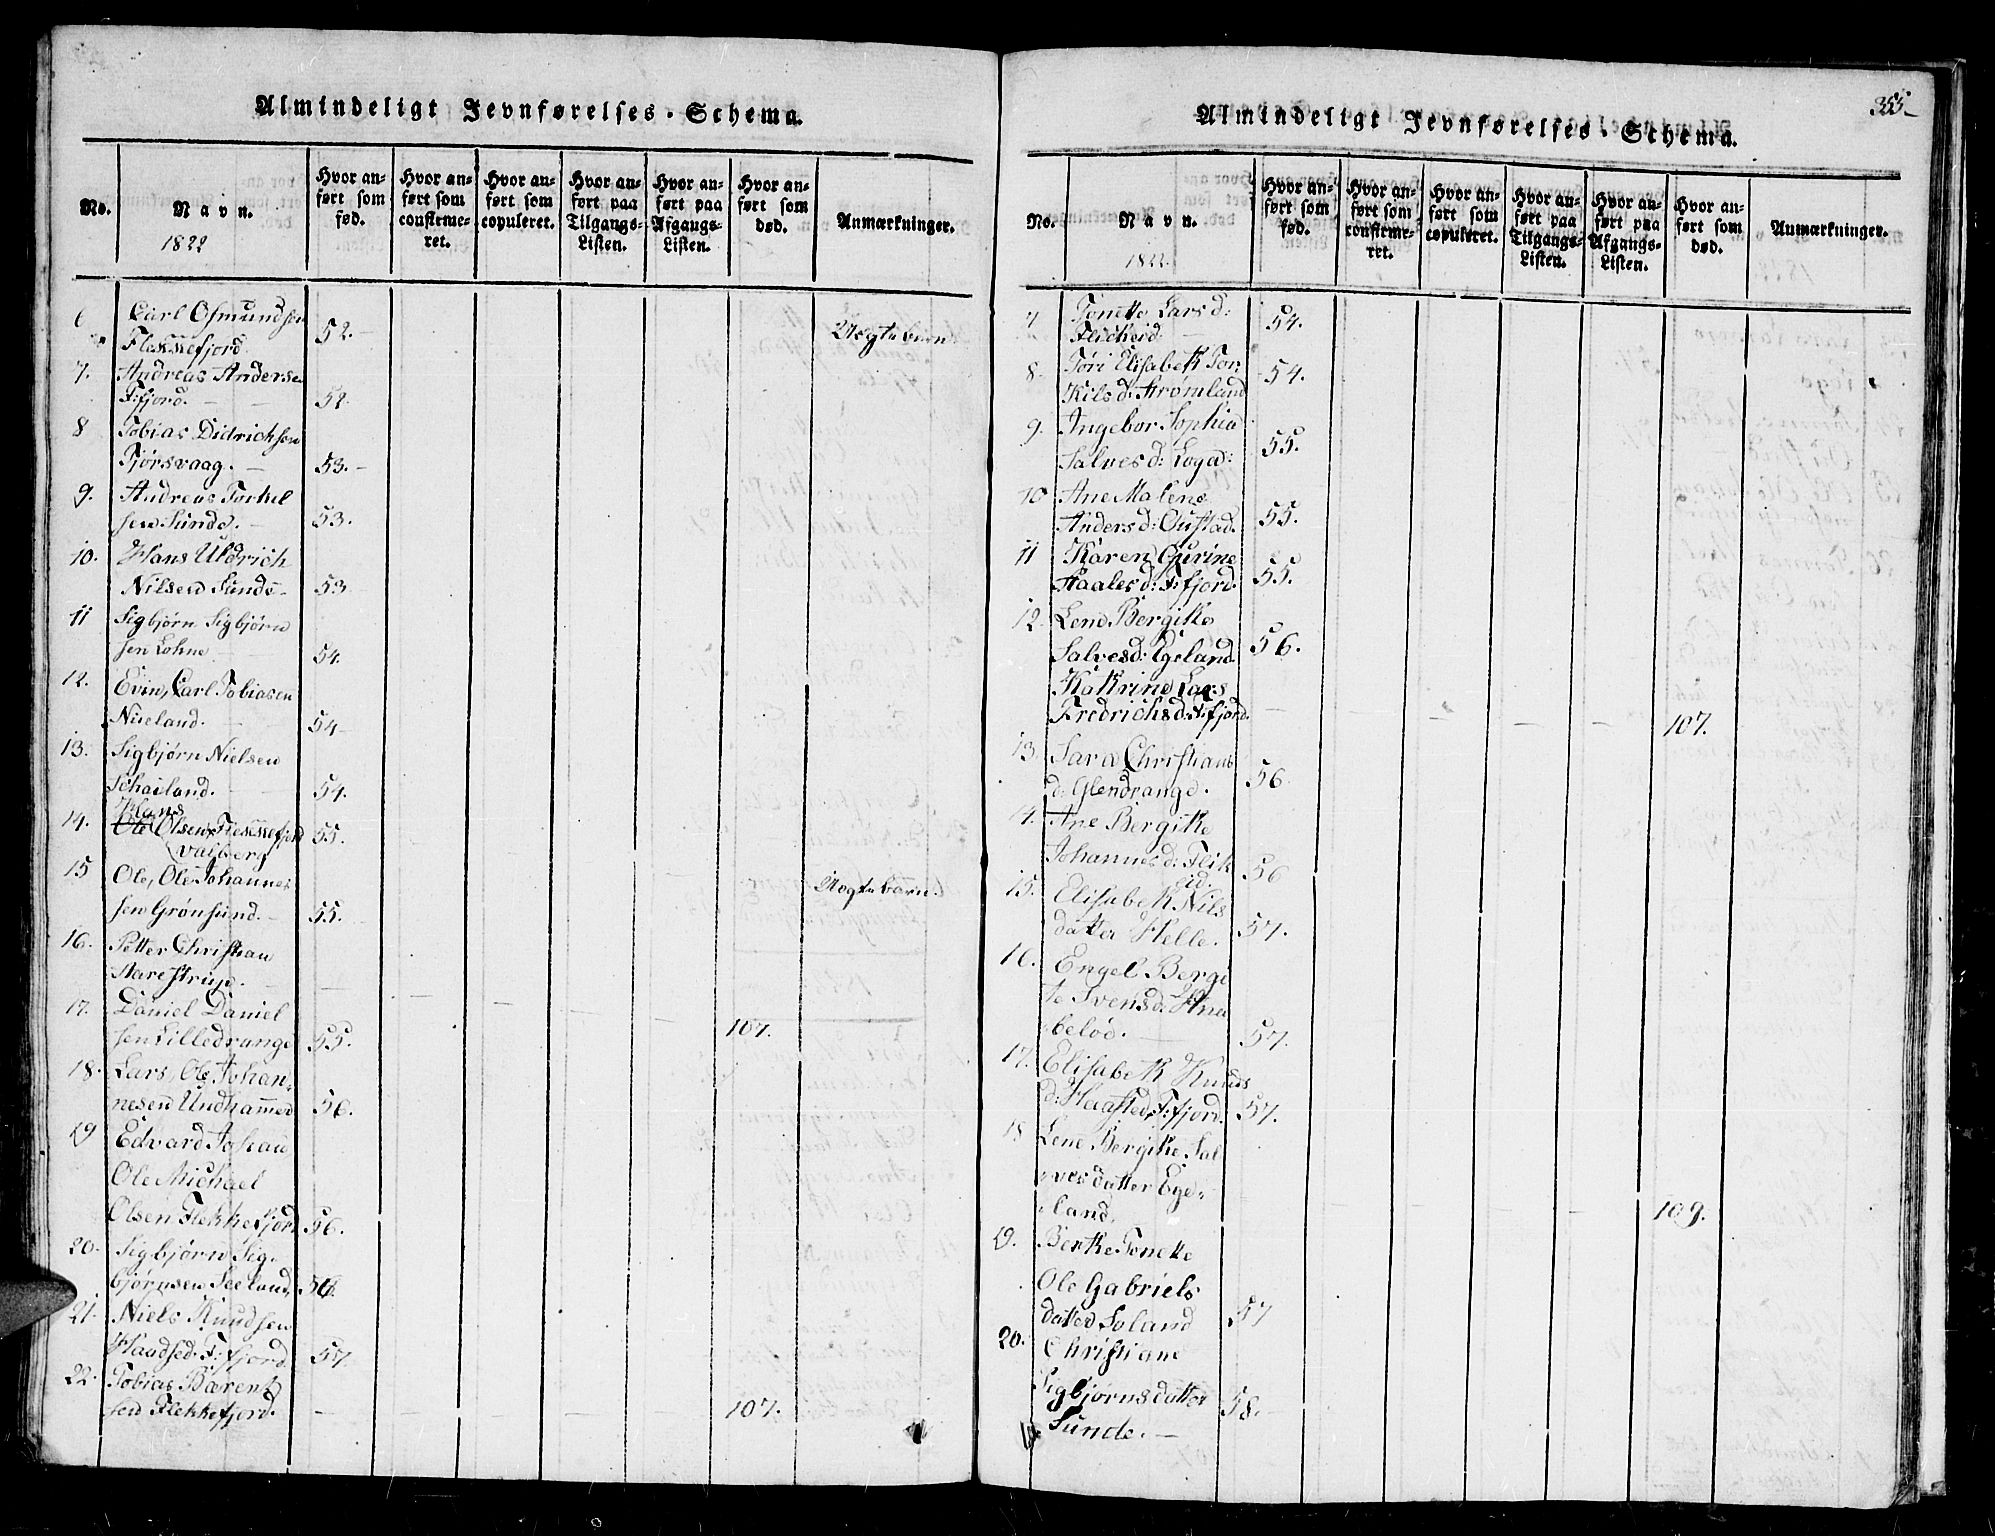 Almindeligt Jevnførelses-Schema.
No.
Navn.
1822
Hvor an-
ført som
fød.
Hvor an-
ført som
confirme-
ret.
Hvor an-
ført som
copuleret.
Hvor an-
ført paa
Tilgangs-
Listen.
Hvor an-
ført paa
Afgangs-
Listen.
Hvor an-
ført som
død.
Anmærkninger.
6 Carl Osmundsen
Flekkefjord 52. Uegte barn
7. Andreas Andersen
F:fjord. 52.
8 Tobias Didrichsen
Tjørsvaag. 53.
9. Andreas Torkel
sen Sunde. 53.
10. Hans Uldrich
Nilsen Sunde 53
11 Sigbjørn Sigbjørn
sen Lohne 54.
12. Evin, Carl Tobiasen
Nueland. 54
13. Sigbjørn Nielsen
Schailand. 54.
Hans
14. Ole Olsen, Flekkefjord 55.
Valberg
15 Ole, Ole Johannes
sen Grønsund. 55. Uegte barn.
16. Petter Christian
Aarestrup.
17. Daniel Daniel 107.
sen Lilledrange 55.
18. Lars, Ole Johan-
nesen Undhammer 56.
19 Edvard Johan
Ole Michael
Olsen Flekkefjord 56.
20. Sigbjørn Sig-
bjørnsen Seeland, 56.
21. Niels Knudsen
Haadsed F:fjord 57
22. Tobias Bærent
sen Flekkefjord. 107.
355
Almindeligt Jevnførelses-Schema.
No.
Navn.
1822.
Hvor an-
ført som
fød.
Hvor an-
ført som
confirme-
ret.
Hvor an-
ført som
copuleret.
Hvor an-
ført paa
Tilgangs-
Listen.
Hvor an-
ført paa
Afgangs-
Listen.
Hvor an-
ført som
død.
Anmærkninger.
7 Tonette Lars d:
Flickeid 54.
8. Tøri Elisabeth Tor-
kils d: Strømland 54.
9. Angebor Sophia
Salves d: Loga: 55.
10 Ane Malene
Anders d: Oustad. 55.
11 Karen Gurine
Staales d: F:fjord. 55.
12. Lene Bergitte
Salves d: Egeland. 56.
Katrine Lars
Fredrichs d: F:fjord. 107.
13. Sara Christians
d: Glendrange. 56.
14. Ane Bergitte
Johannes d: Flik
eid. 56
15. Elisabeth Nils
datter Helle. 57.
16. Engel Berge
te Svens d: Hna
beløe. 57.
17. Elisabeth Knuds
d: Haasted, F:fjord. 57.
18 Lene Bergitte Sal
ves datter Ege-
land. 109.
19. Berthe Tonette
Ole Gabriels
datter Soland 57
20. Christiane
Sigbjørnsdatter 58.
Sunde.